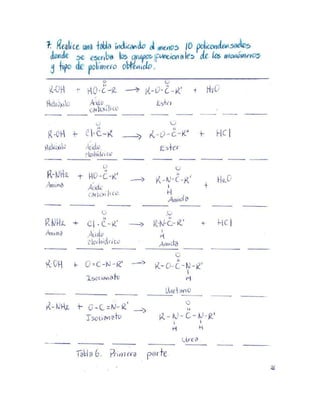 7. Realice una tabla indicando al menos 10 policondensados
donde se escriba los grupos funcionales de los monómeros
y tipo de polímero obtenido.
R-OH + HO-C-R → R-O-C-R' + H2O
O O
Ácido Ester
Carboxílico
O O
R-OH + Cl-C-R' → R-O-C-R' + HCl
Ácido Ester
O O
R-NH2 + HO-C-R' → R-N-C-R' + H2O
Amina Ácido H
Carboxílico Amida
O O
R-NH2 + Cl-C-R' → R-N-C-R' + HCl
Amina Ácido H
Clorhídrico Amida
O
R-OH + O=C-N-R' → R-O-C-N-R'
Isocianato H
Uretano
O
R-NH2 + O=C=N-R' → R-N-C-N-R'
Isocianato H H
Urea
Tabla 6. Primera parte